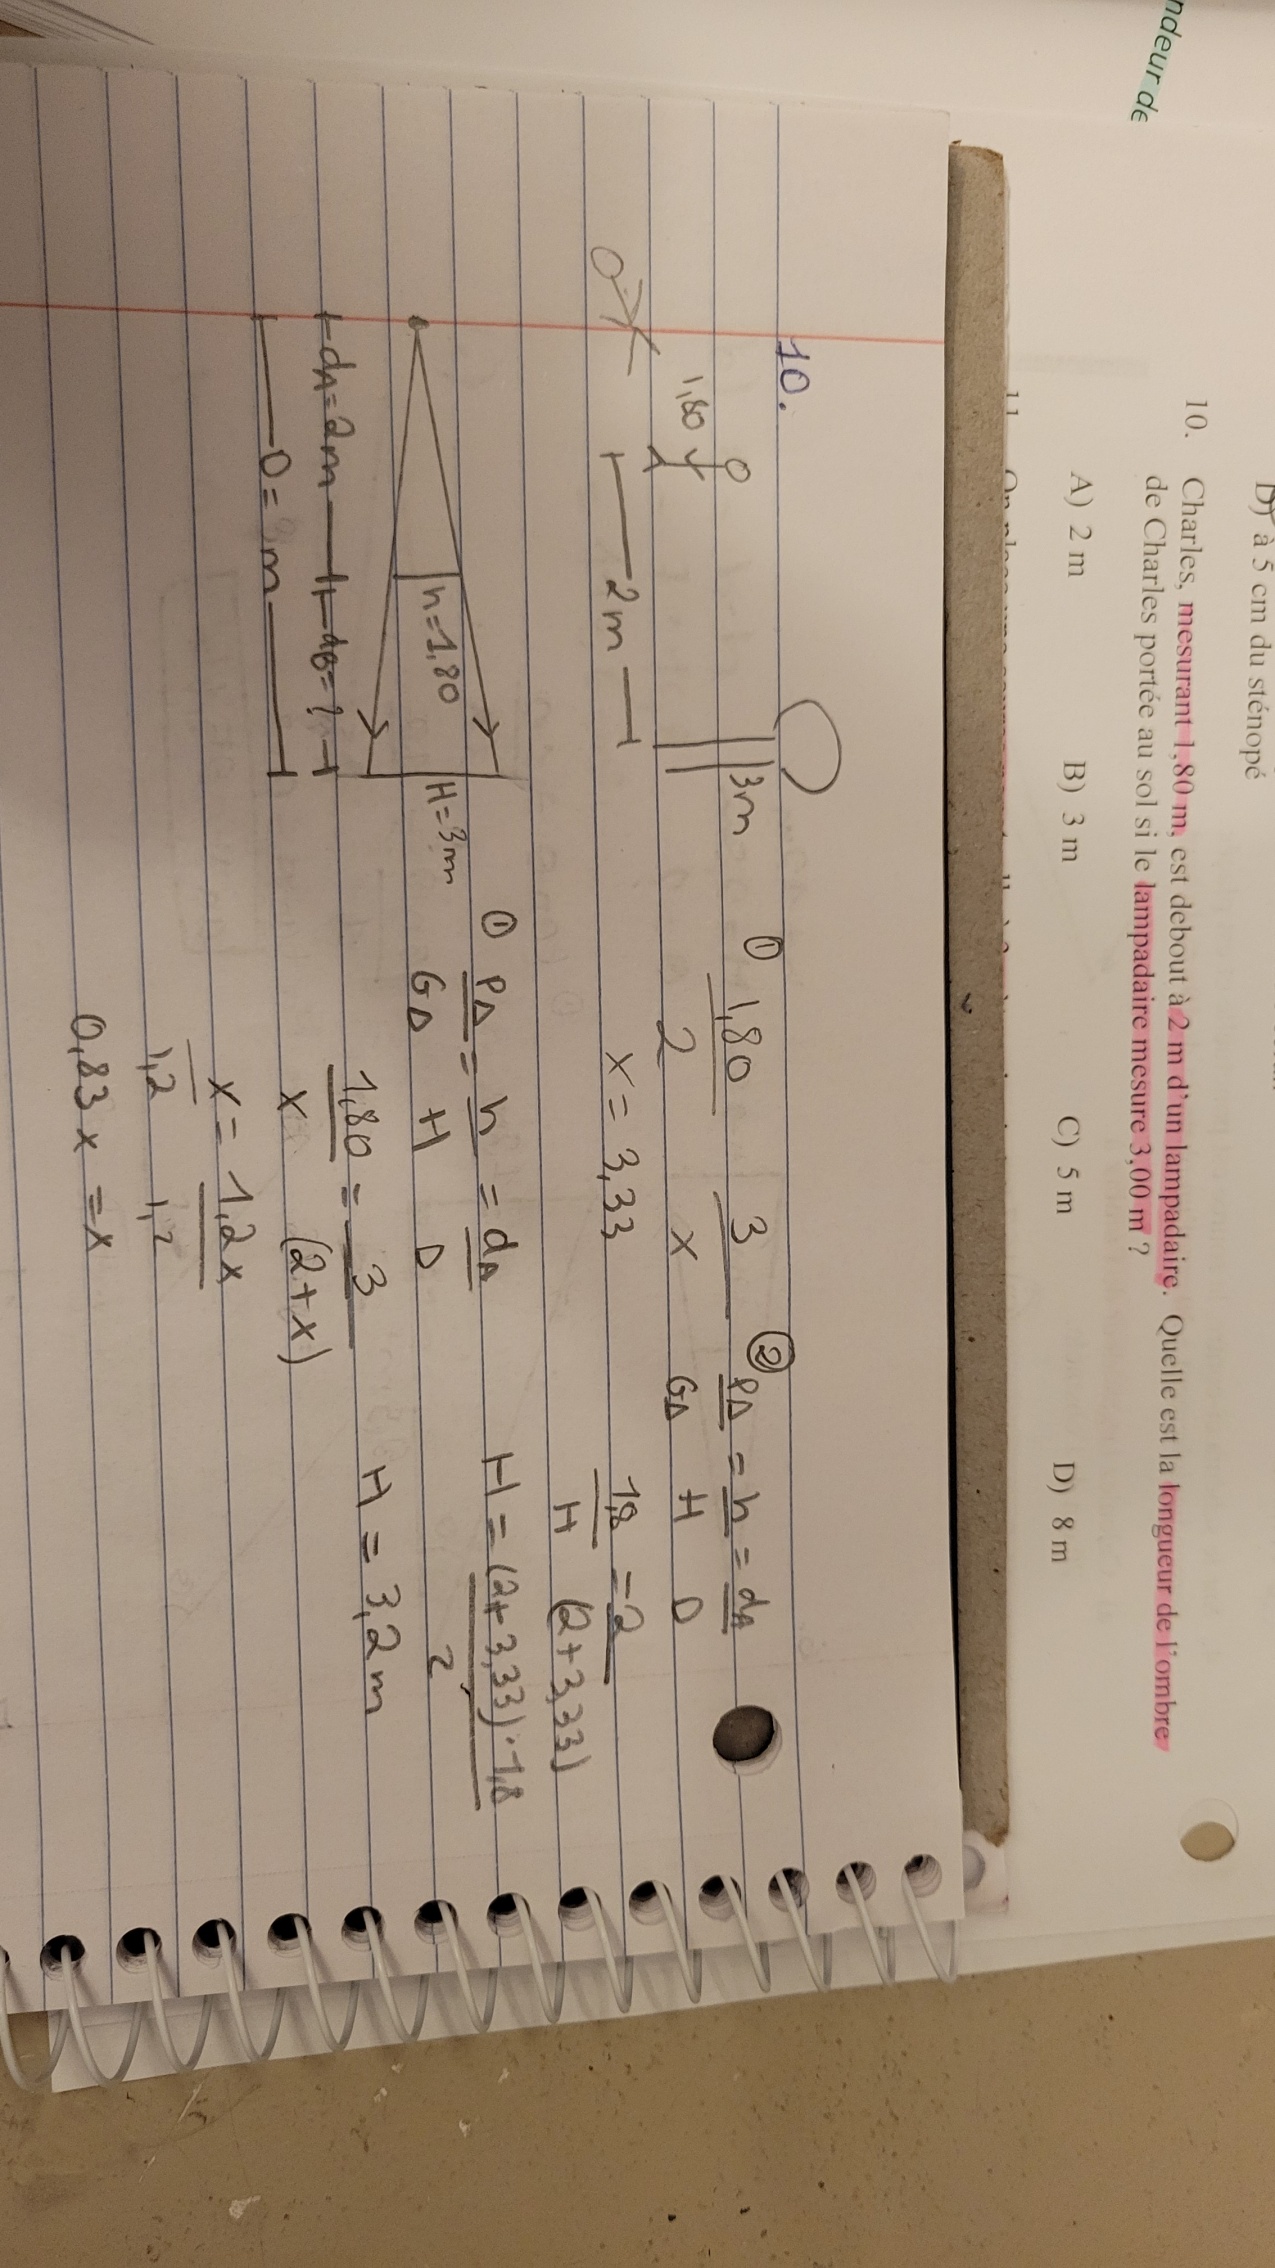 ndeur de
D) à 5 cm du sténopé
10. Charles, mesurant 1,80 m, est debout à 2 m d'un lampadaire. Quelle est la longueur de l'ombre
de Charles portée au sol si le lampadaire mesure 3,00 m ?
A) 2 m B) 3 m C) 5 m D) 8 m
11.
10.
1,80
3m
2m
① 1,80 3
2 x
x = 3,33
② PΔ = h = dA
GΔ H D
1,8 = 2
H (2+3,33)
H = (2+3,33)·1,8
2
H = 3,2m
h=1,80
H=3m
dA=2m dB=?
D= m
① PΔ = h = dA
GΔ H D
1,80 = 3
x (2+x)
x = 1,2x
1,2 1,2
0,83x = x